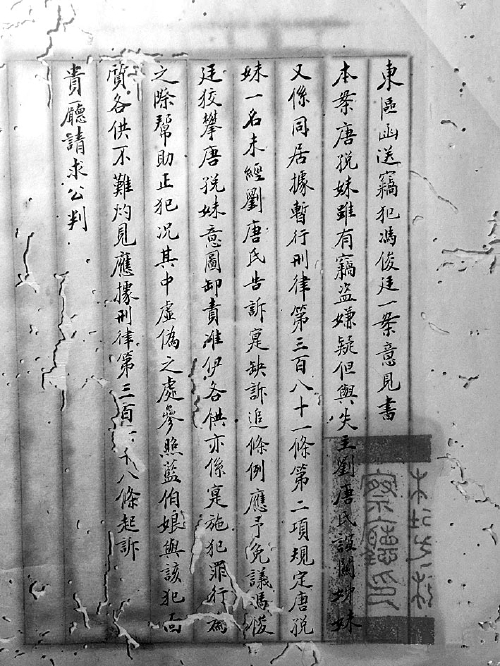 東區函送竊犯馮俊廷一案意見書
本案唐猊妹雖有竊盜嫌疑但與失主劉唐氏誼關姊妹
又係同居據暫行刑律第三百八十一條第二項規定唐猊
妹一名未經劉唐氏告訴寔缺訴追條例應予免議馮俊
廷狡攀唐猊妹意圖卸責唯伊各供亦係寔施犯罪行為
之際幫助正犯况其中虛偽之處參照藍伯娘與該犯
質各供不難灼見應據刑律第三百 十八條起訴
貴廳請求公判